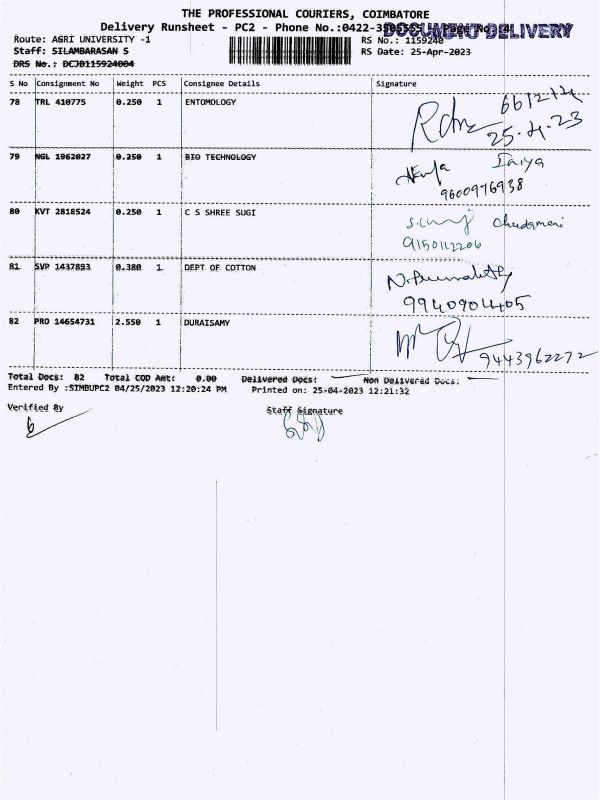 THE PROFESSIONAL COURIERS, COIMBATORE
Delivery Runsheet - PC2 - Phone No.:0422-
DOCUMENT DELIVERY
Route: AGRI UNIVERSITY -1
RS No.: 1159240
Staff: SILAMBARASAN S
RS Date: 25-Apr-2023
DRS No.: DCJB115924004
S No Consignment No Weight PCS Consignee Details Signature
78 TRL 410775 0.250 1 ENTOMOLOGY
25.4.23
79 NGL 1962027 0.250 1 BIO TECHNOLOGY
Iniya
9600976938
80 KVT 2818524 0.250 1 C S SHREE SUGI
9150112206
81 SVP 1437893 0.380 1 DEPT OF COTTON
9940904405
82 PRO 14654731 2.550 1 DURAISAMY
9443962272
Total Docs: 82 Total COD Amt: 0.00 Delivered Docs: Non Delivered Docs:
Entered By :SIMBUPC2 04/25/2023 12:20:24 PM Printed on: 25-04-2023 12:21:32
Verified By Staff Signature